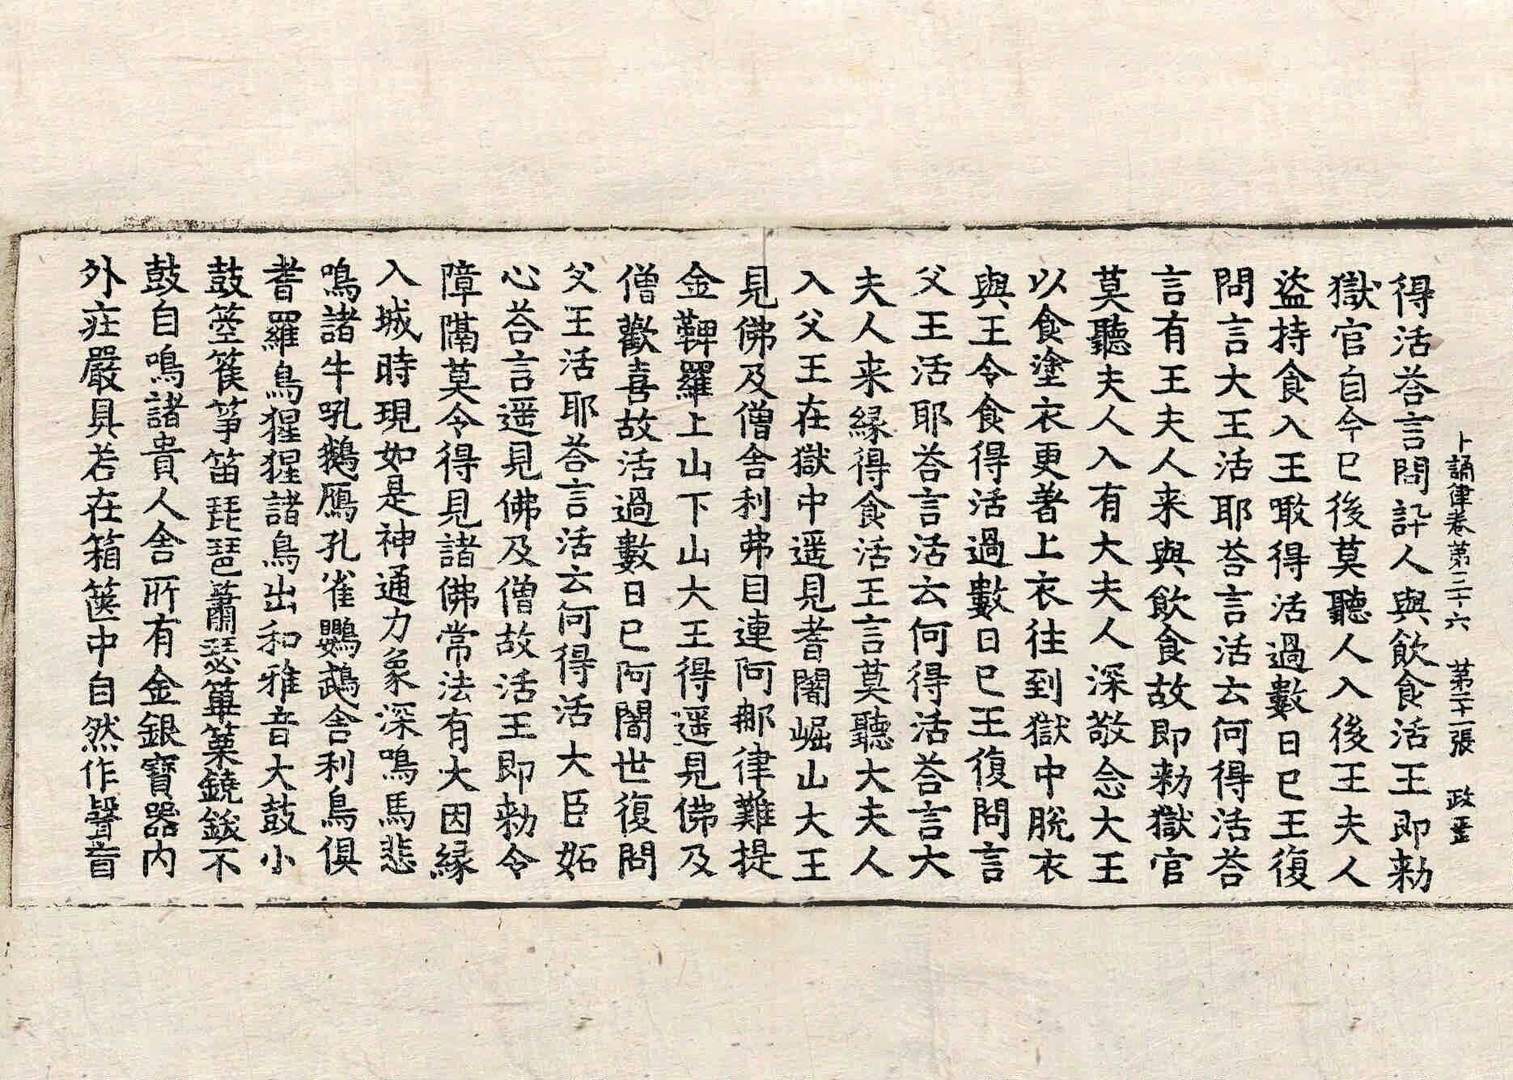 十誦律卷第三十六　第二十一張　政
得活荅言問訊人與飲食活王即勑
獄官自今已後莫聽人入後王夫人
盜持食入王噉得活過數日已王復
問言大王活耶荅言活云何得活荅
言有王夫人来與飲食故即勑獄官
莫聽夫人入有大夫人深敬念大王
以食塗衣更著上衣往到獄中脫衣
與王令食得活過數日已王復問言
父王活耶荅言活云何得活荅言大
夫人来緣得食活王言莫聽大夫人
入父王在獄中遥見耆闍崛山大王
見佛及僧舍利弗目連阿那律難提
金鞞羅上山下山大王得遥見佛及
僧歡喜故活過數日已阿闍世復問
父王活耶荅言活云何得活大臣妬
心荅言遥見佛及僧故活王即勑令
障隔莫令得見諸佛常法有大因緣
入城時現如是神通力象深鳴馬悲
鳴諸牛吼鵝鴈孔雀鸚鵡舍利鳥俱
耆羅鳥猩猩諸鳥出和雅音大鼓小
鼓箜篌箏笛琵琶簫瑟篳篥鐃鈸不
鼓自鳴諸貴人舍所有金銀寶器内
外莊嚴具若在箱篋中自然作聲盲